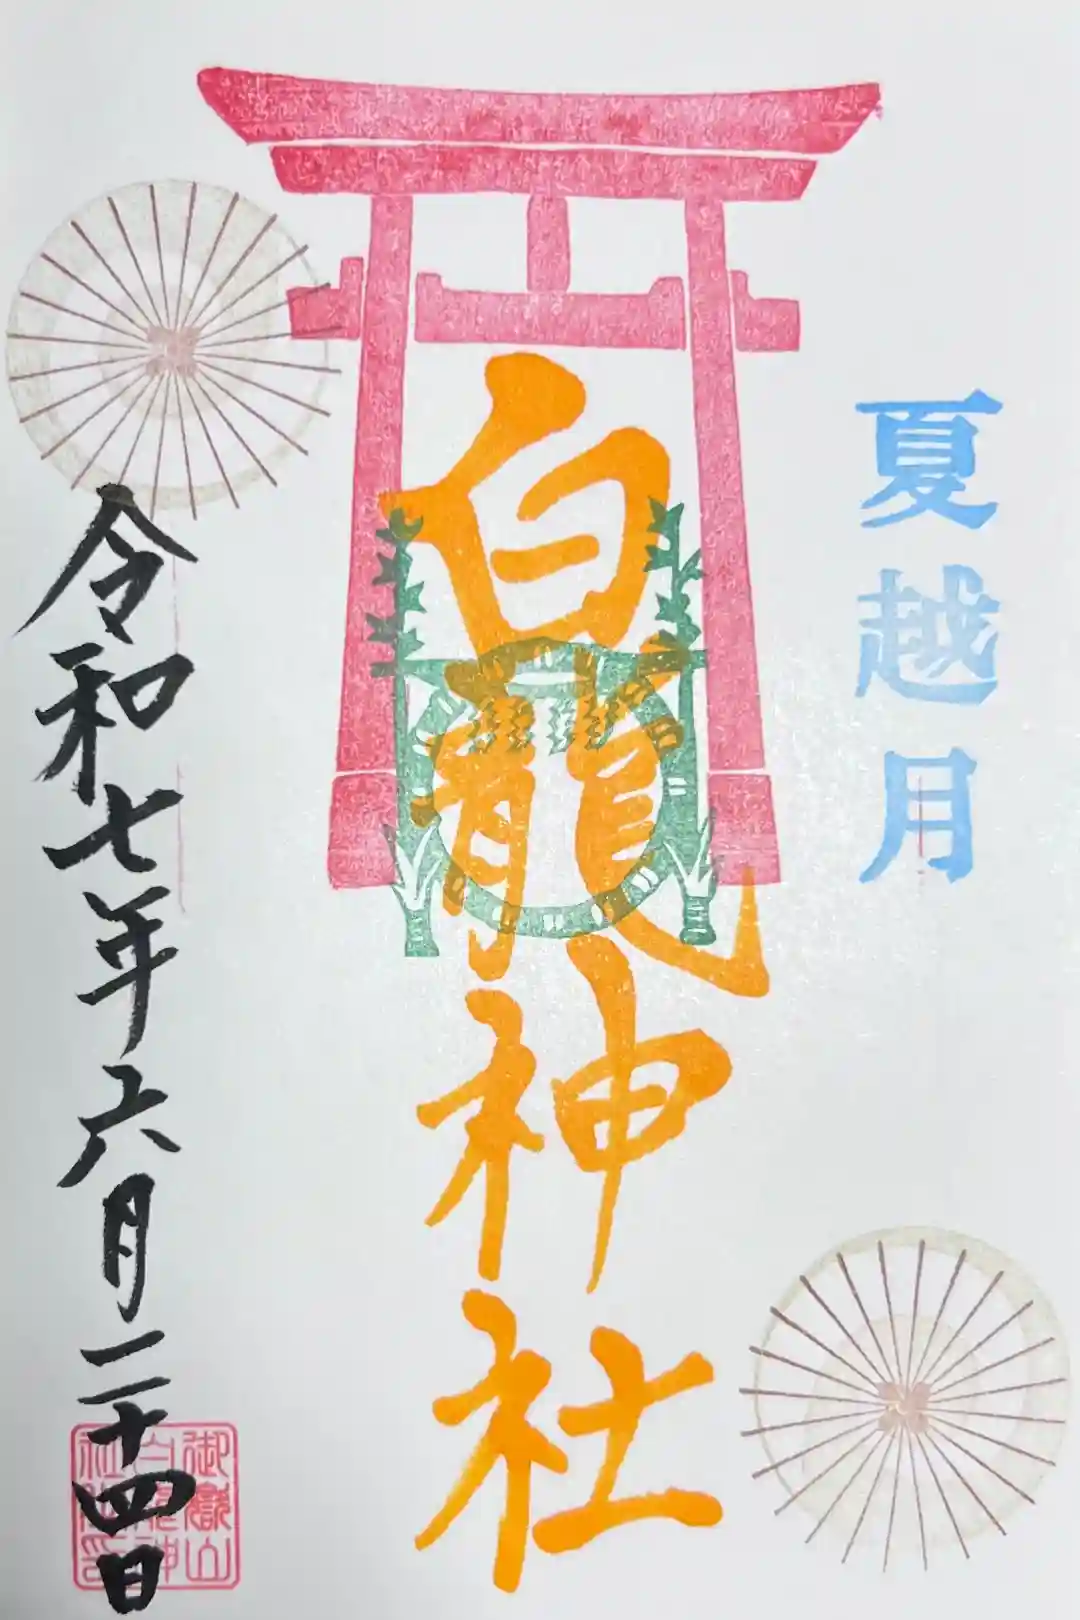 夏越月
白龍神社
令和七年六月二十四日
御嶽山
白龍神
社